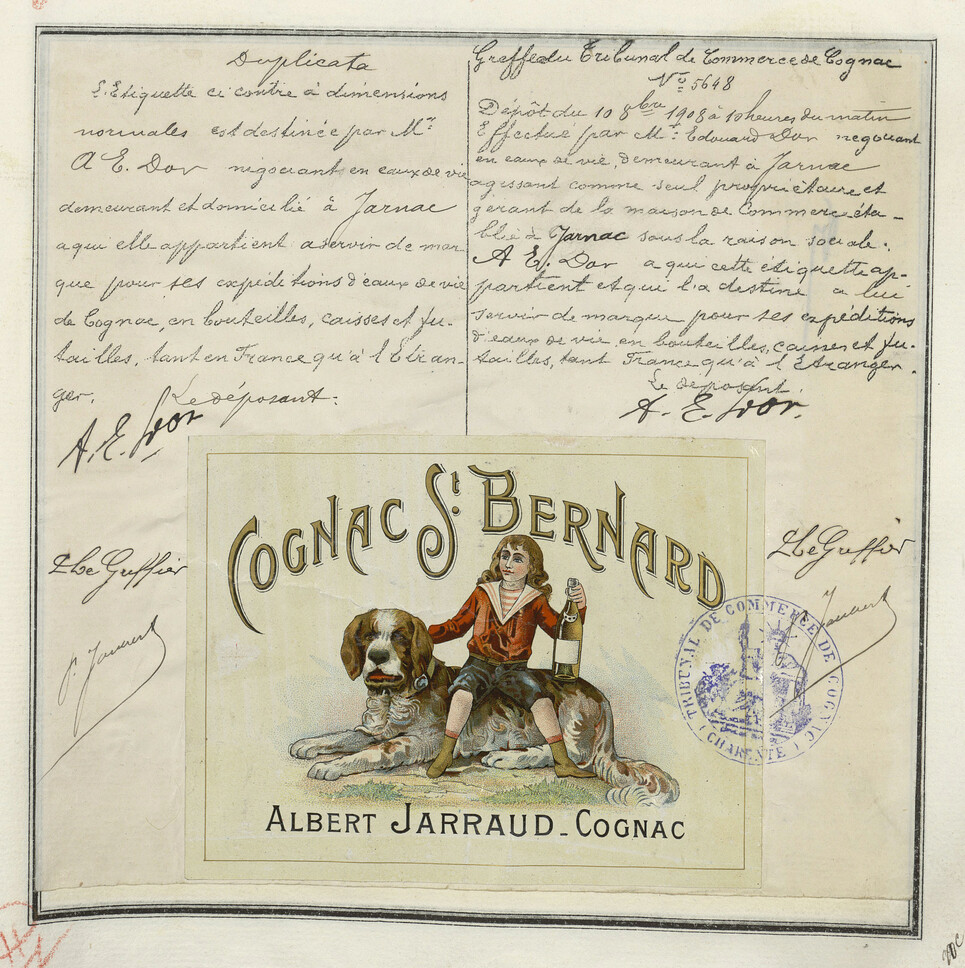 Duplicata
L'Etiquette ci contre à dimensions
normales est destinée par Mr.
A E. Dor négociant en eaux de vie
demeurant et domicilié à Jarnac
a qui elle appartient a servir de mar
que pour ses expéditions d'eaux de vie
de Cognac, en bouteilles, caisses et fu-
tailles, tant en France qu'à l'Etran-
ger. Le déposant.
A. E. Dor
Greffe du Tribunal de Commerce de Cognac
No 5648
Dépôt du 10 8bre 1908 à 10 heures du matin
Effectué par Mr. Edouard Dor negociant
en eaux de vie, demeurant à Jarnac
agissant comme seul propriétaire et
gérant de la maison de Commerce éta-
blie à Jarnac sous la raison sociale.
A E. Dor a qui cette étiquette ap-
partient et qui l'a destine a lui
servir de marque pour ses expéditions
d'eaux de vie en bouteilles, caisses et fu-
tailles, tant France qu'à l'Etranger.
Le déposant.
A. E. Dor.
COGNAC St. BERNARD
Le Greffier
Le Greffier
TRIBUNAL DE COMMERCE DE COGNAC
(CHARENTE)
ALBERT JARRAUD - COGNAC